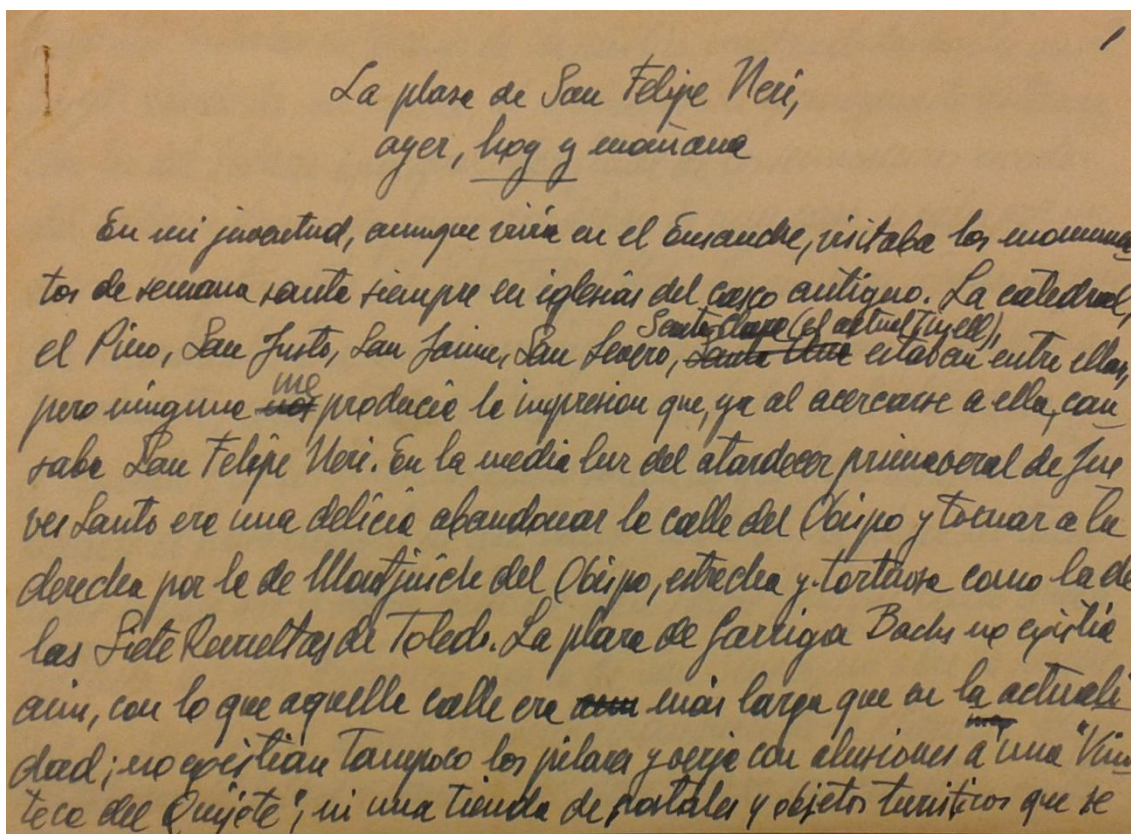 1
La plaza de San Felipe Neri,
ayer, hoy y mañana
En mi juventud, aunque vivía en el Ensanche, visitaba los monumen
tos de semana santa siempre en iglesias del casco antiguo. La catedral,
el Pino, San Justo, San Jaime, San Severo, Santa Clara (el actual Tinell), estaban entre ellas,
pero ninguna me producía la impresion que, ya al acercarse a ella, cau
saba San Felipe Neri. En la media luz del atardecer primaveral de Jue
ves Santo era una delicia abandonar la calle del Obispo y tomar a la
derecha por la de Montjuich del Obispo, estrecha y tortuosa como la de
las Siete Revueltas de Toledo. La plaza de Garriga Bachs no existía
aún, con lo que aquella calle era más larga que en la actuali
dad; no existían tampoco los pilares y verja con alusiones a una "Vin
teca del Quijote", ni una tienda de postales y objetos turísticos que se